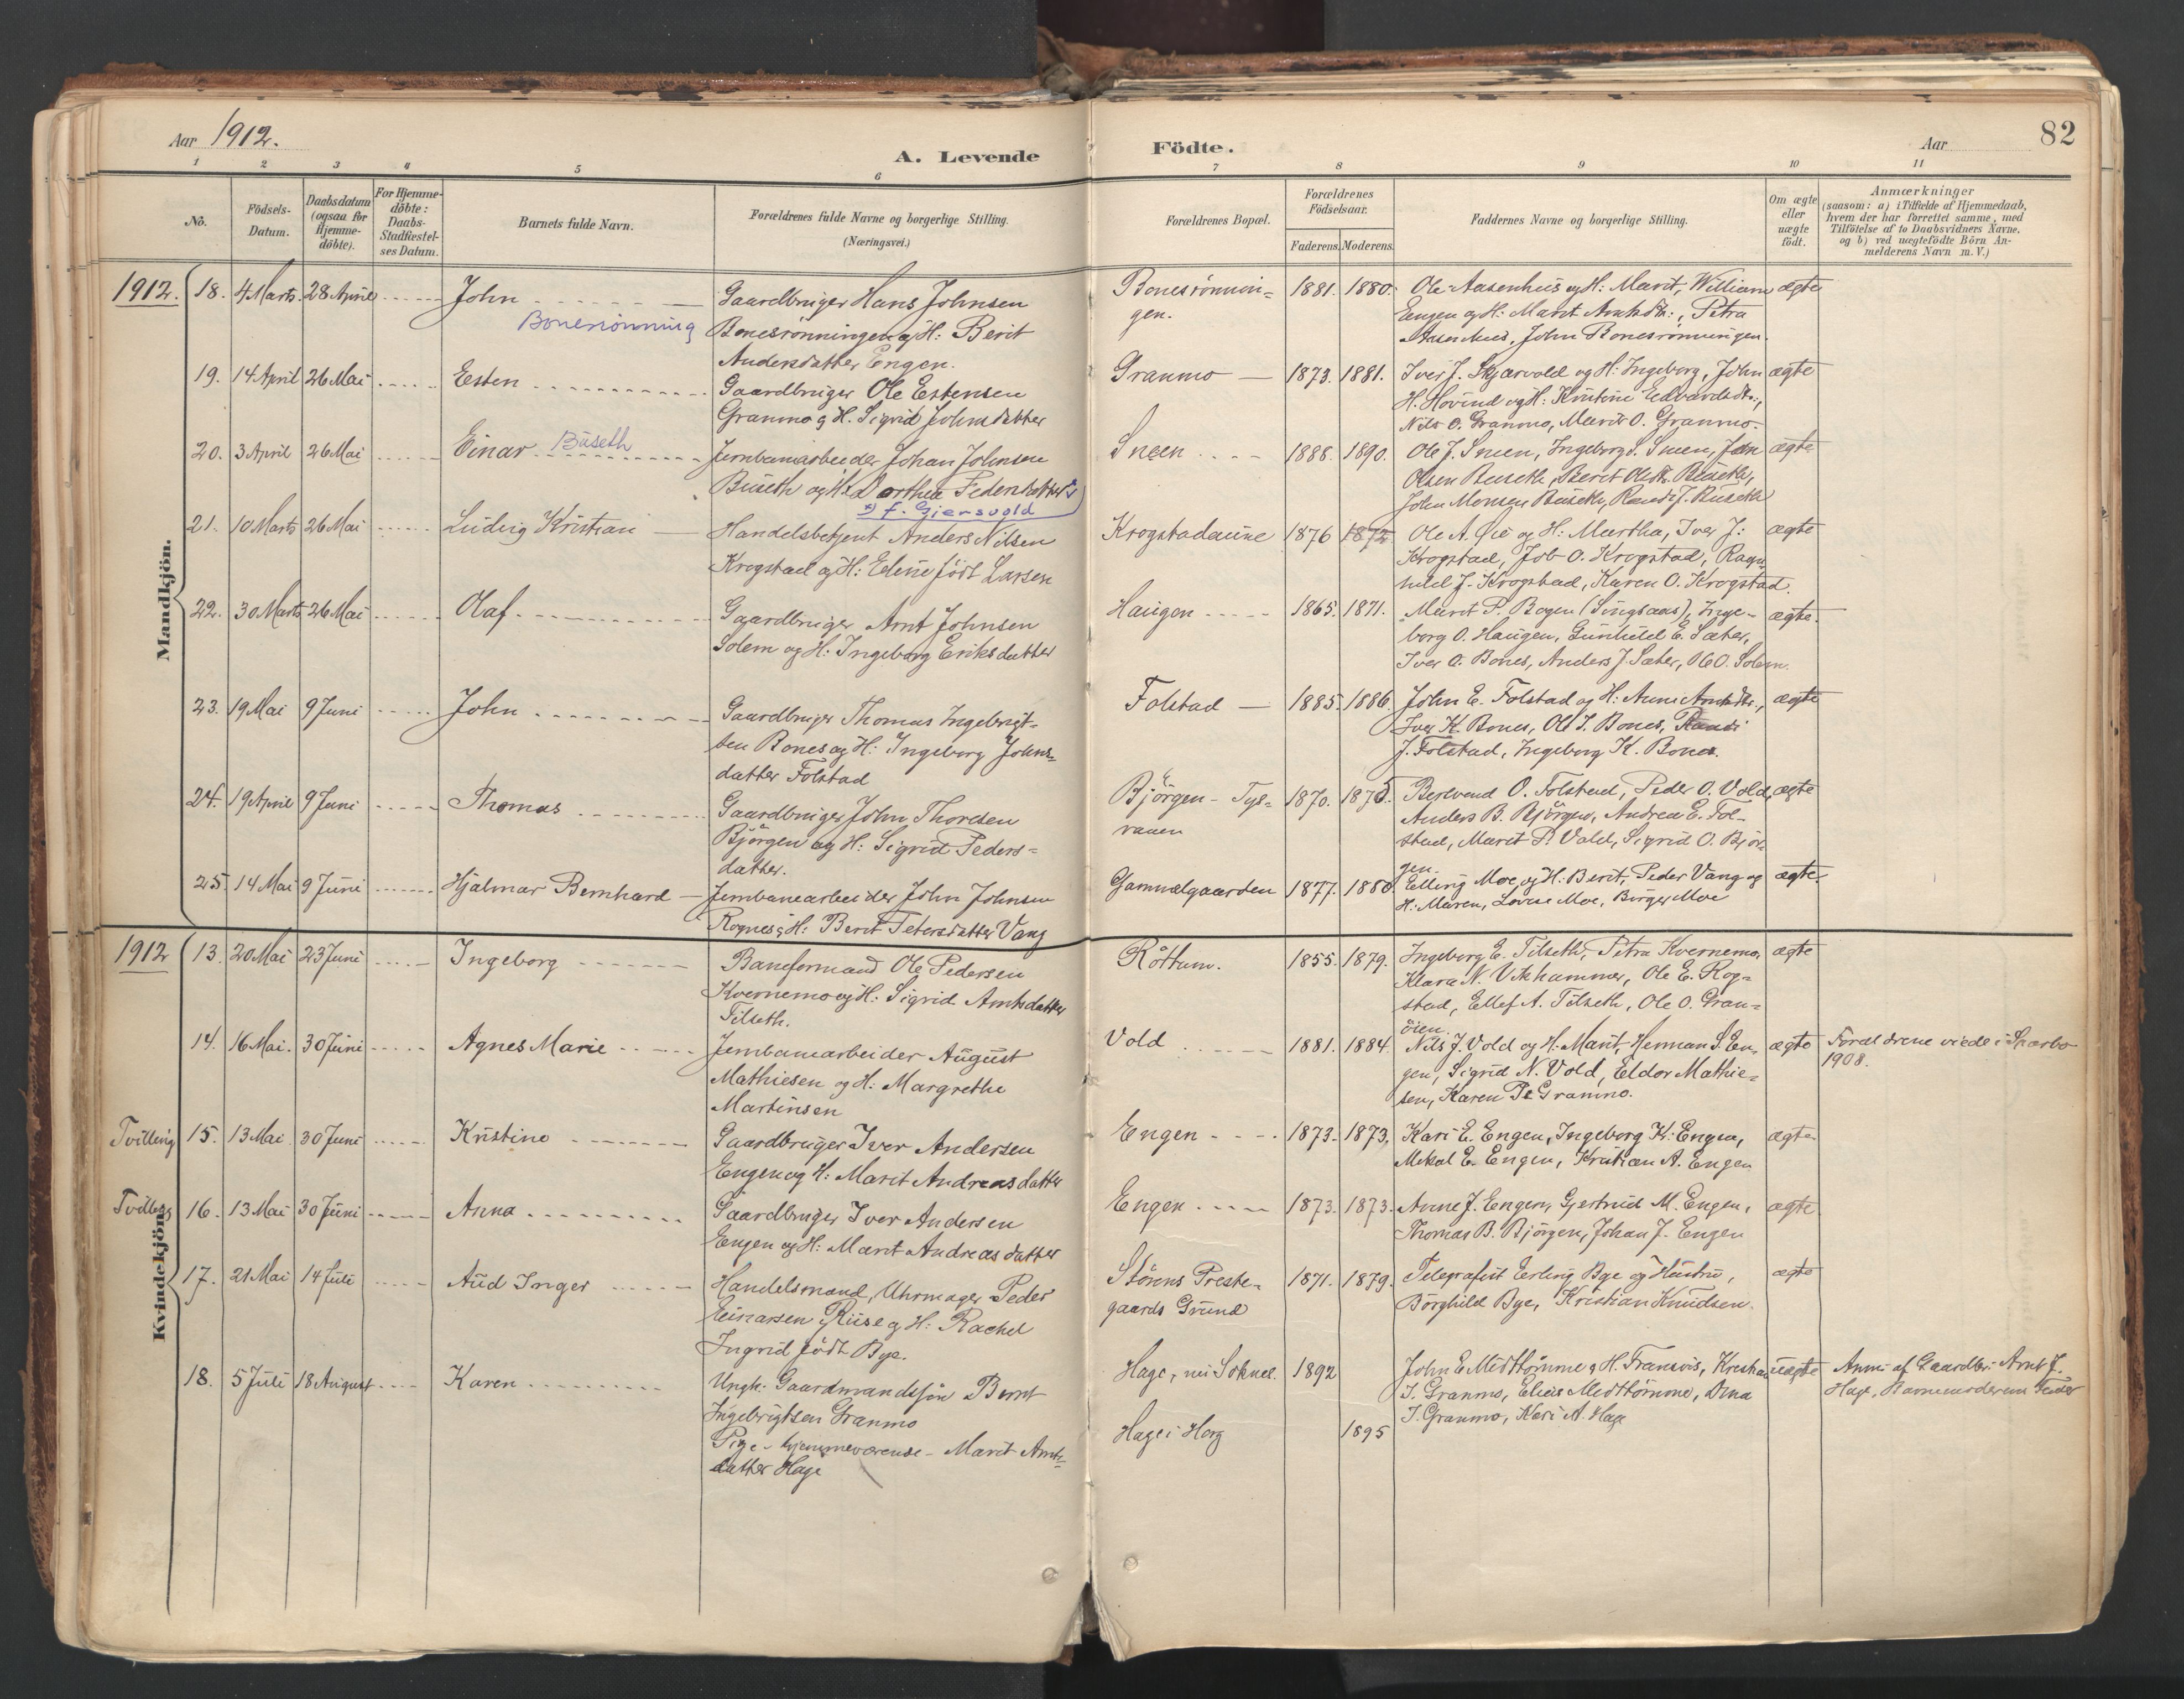 Aar 1912.
A. Levende
Födte.
Aar
82
1 2 3 4 5 6 7 8 9 10 11
No.
Födsels-Datum.
Daabsdatum (ogsaa for Hjemme-döbte).
For Hjemme-döbte: Daabs-Stadfæstel-ses Datum.
Barnets fulde Navn.
Forældrenes fulde Navne og borgerlige Stilling. (Næringsvei.)
Forældrenes Bopæl.
Forældrenes Födselsaar.
Faderens. Moderens.
Faddernes Navne og borgerlige Stilling.
Om ægte eller uægte födt.
Anmærkninger
(saasom: a) i Tilfælde af Hjemmedaab,
hvem der har forrettet samme, med
Tilföielse af to Daabsvidners Navne.
og b) ved uægtefödte Börn An-
melderens Navn m. V.)
Mandkjön.
1912. 18. 4 Marts 28 April John Bonesrönning
Gaardbruger Hans Johnsen
Bonesrönningen og H: Berit
Andersdatter Engen.
Bonesrönnin-
gen.
1881. 1880.
Ole Aasenhus og H: Marit, William
Engen og H: Marit Arntsdtr:, Petra
Aasenhus, John Bonesrönningen.
ægte
19. 14 April 26 Mai Esten
Gaardbruger Ole Estensen
Granmo og H. Sigrid Johnsdatter
Granmo
1873. 1881.
Iver J. Skjærvold og H: Ingeborg, John
H. Hovind og H: Kristine Edvardsdtr.,
Nils O. Granmo, Marit O. Granmo.
ægte
20. 3 April 26 Mai Einar Buseth
Jernbanearbeider Johan Johnsen
Buseth og H: Dorthea Pedersdatter x)
x) f. Gjersvold
Sneen
1888. 1890.
Ole J. Sneen, Ingeborg S. Sneen, John
Olsen Buseth, Beret Olsdtr. Buseth,
John Monsen Buseth, Randi J. Buseth
ægte
21. 10 Marts 26 Mai Ludvig Kristian
Handelsbetjent Anders Nilsen
Krogstad og H: Eline födt Larsen
Krogstadaune
1876 1872
Ole A. Öie og H: Martha, Iver J:
Krogstad, Job O. Krogstad, Ragn-
hild J. Krogstad, Karen O. Krogstad.
ægte
22. 30 Marts 26 Mai Olaf.
Gaardbruger Arnt Johnsen
Solem og H: Ingeborg Eriksdatter
Haugen
1865. 1871.
Marit P. Bogen (Singsaas), Inge-
borg O. Haugen, Gunhild E. Sæter,
Iver O. Bones, Anders J. Sæter, Ole O. Solem.
ægte.
23. 19 Mai 9 Juni John
Gaardbruger Thomas Ingebrigt-
sen Bones og H: Ingeborg Johns-
datter Folstad
Folstad
1885. 1886.
John E. Folstad og H: Anne Arntsdtr.,
Iver K. Bones, Ole I. Bones, Randi
J. Folstad, Ingeborg K. Bones.
ægte
24. 19 April 9 Juni Thomas
Gaardbruger John Thoresen
Bjørgen og H: Sigrid Peders-
datter.
Bjørgen - Tys-
vauen
1870. 1875.
Bertvend O. Folstad, Peder O. Vold,
Anders B. Bjørgen, Andrea E. Fol-
stad, Marit P. Vold, Sigrid O. Bjør-
gen.
ægte
25. 14 Mai 9 Juni Hjalmar Bernhard
Jernbanearbeider John Johnsen
Rognes og H: Berit Petersdatter Vang
Gammelgaarden
1877. 1880.
Elling Moe og H: Berit, Peder Vang og
H: Maren, Lovise Moe, Birger Moe
ægte.
Kvindekjön.
1912 13. 20 Mai 23 Juni Ingeborg
Baneformand Ole Pedersen
Kvernemo og H: Sigrid Arntsdatter
Tilseth.
Röttum.
1855. 1879.
Ingeborg E. Tilseth, Petra Kvernemo,
Klara N. Vikhammer, Ole E. Rog-
stad, Ellef A. Tilseth, Ole O. Gran-
öien.
ægte
14. 16 Mai. 30 Juni Agnes Marie
Jernbanearbeider August
Mathiesen og H: Margrethe
Martinsen
Vold
1881. 1884.
Nils J. Vold og H: Marit, Herman S. En-
gen, Sigrid N. Vold, Eldor Mathie-
sen, Karen P. Granmo.
ægte
Foreldrene viede i Sparbo
1908.
Tvilling 15. 13 Mai 30 Juni Kristine
Gaardbruger Iver Andersen
Engen og H: Marit Andreasdatter
Engen
1873. 1873.
Kari E. Engen, Ingeborg K. Engen,
Mikal E. Engen, Kristian A. Engen
ægte
Tvilling 16. 13 Mai 30 Juni Anna
Gaardbruger Iver Andersen
Engen og H: Marit Andreasdatter
Engen
1873. 1873.
Anne J. Engen, Gjertrud M. Engen,
Thomas B. Bjørgen, Johan J. Engen
ægte
17. 21 Mai 14 Juli Aud Inger
Handelsmand, Uhrmager Peder
Einarsen Riise og H: Rachel
Ingrid födt Bye.
Störens Preste-
gaards Grund
1871. 1879.
Telegrafist Erling Bye og Hustru,
Borghild Bye, Kristian Knudsen.
ægte
18. 5 Juli 18 August Karen
Ungk: Gaardmandssön Bernt
Ingebrigtsen Granmo
Pige - hjemmeværende - Marit Arnts-
datter Hage
Hage, nu Soknel.
Hage i Horg
1892
1895
John E. Midttömme og H. Fransvis, Kristian
I. Granmo, Elias Midttömme, Dina
I. Granmo, Kari A. Hage
uægte
Anm: af Gaardbr. Arnt J.
Hage, Barnemoderens Fader